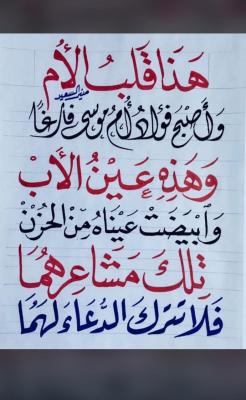 هَذَا قَلْبُ الأُم
منير السعيد
وَأَصْبَحَ فُؤَادُ أُمِّ مُوسَى فَارِغًا
وَهَذِهِ عَيْنُ الأَبْ
وَابْيَضَّتْ عَيْنَاهُ مِنَ الْحُزْنْ
تِلْكَ مَشَاعِرهُمَا
فَلَا تَتْرُكَ الدُّعَاءَ لَهُمَا